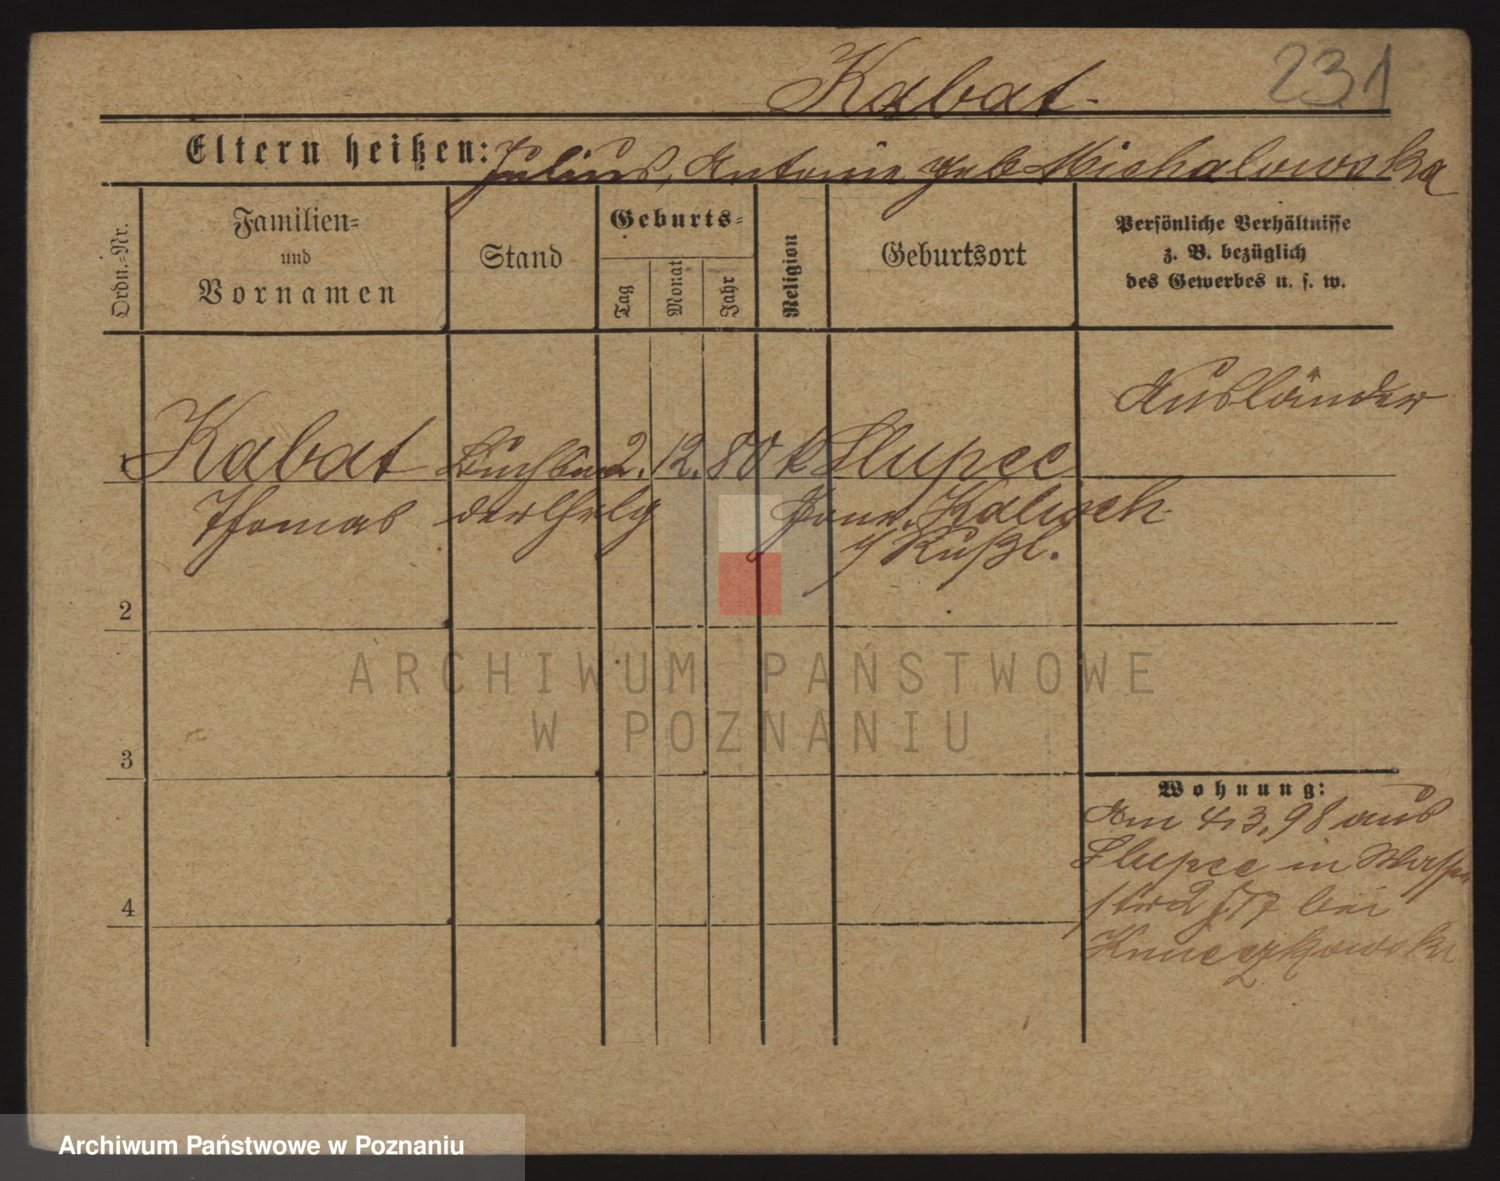 231
Kabat
Eltern heißen: Julius, Antonie geb Michalowska
Ordn.-Nr.
Familien-
und
Vornamen
Stand
Geburts-
Tag
Monat
Jahr
Religion
Geburtsort
Persönliche Verhältnisse
z. B. bezüglich
des Gewerbes u. s. w.
Ausländer
1 Kabat Buchbin 2. 12. 80 k Slupce
Thomas Gouv. Kalisch
Rußl.
2
3
4
Wohnung:
Am 4.3.98 aus
Slupce in Wasser
str 2 bei
ARCHIWUM PAŃSTWOWE
W POZNANIU
Archiwum Państwowe w Poznaniu